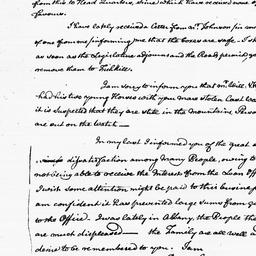 from this to Head Quarters, since which have received none of
favours.
I have lately received a Letter from Mr. Johnson Sir
of one from informing me, that the boxes are safe. I
as soon as the Legislature adjourn and the Roads permit
remove them to Fishkill.
I am sorry to inform you that Mr. Will.
had his two young Horses with your mare stolen last
it is suspected that they are still in the mountains.
are out on the watch —
In my last I informed you of the great
dissatisfaction among many People, owing to
not being able to receive the Interest from the Loan Off
I wish some attention might be paid to this business
am confident it has prevented large sums from
to the Office. I was lately in Albany, the People th
are much displeased — the Family are all well
desire to be remembered to you. I am